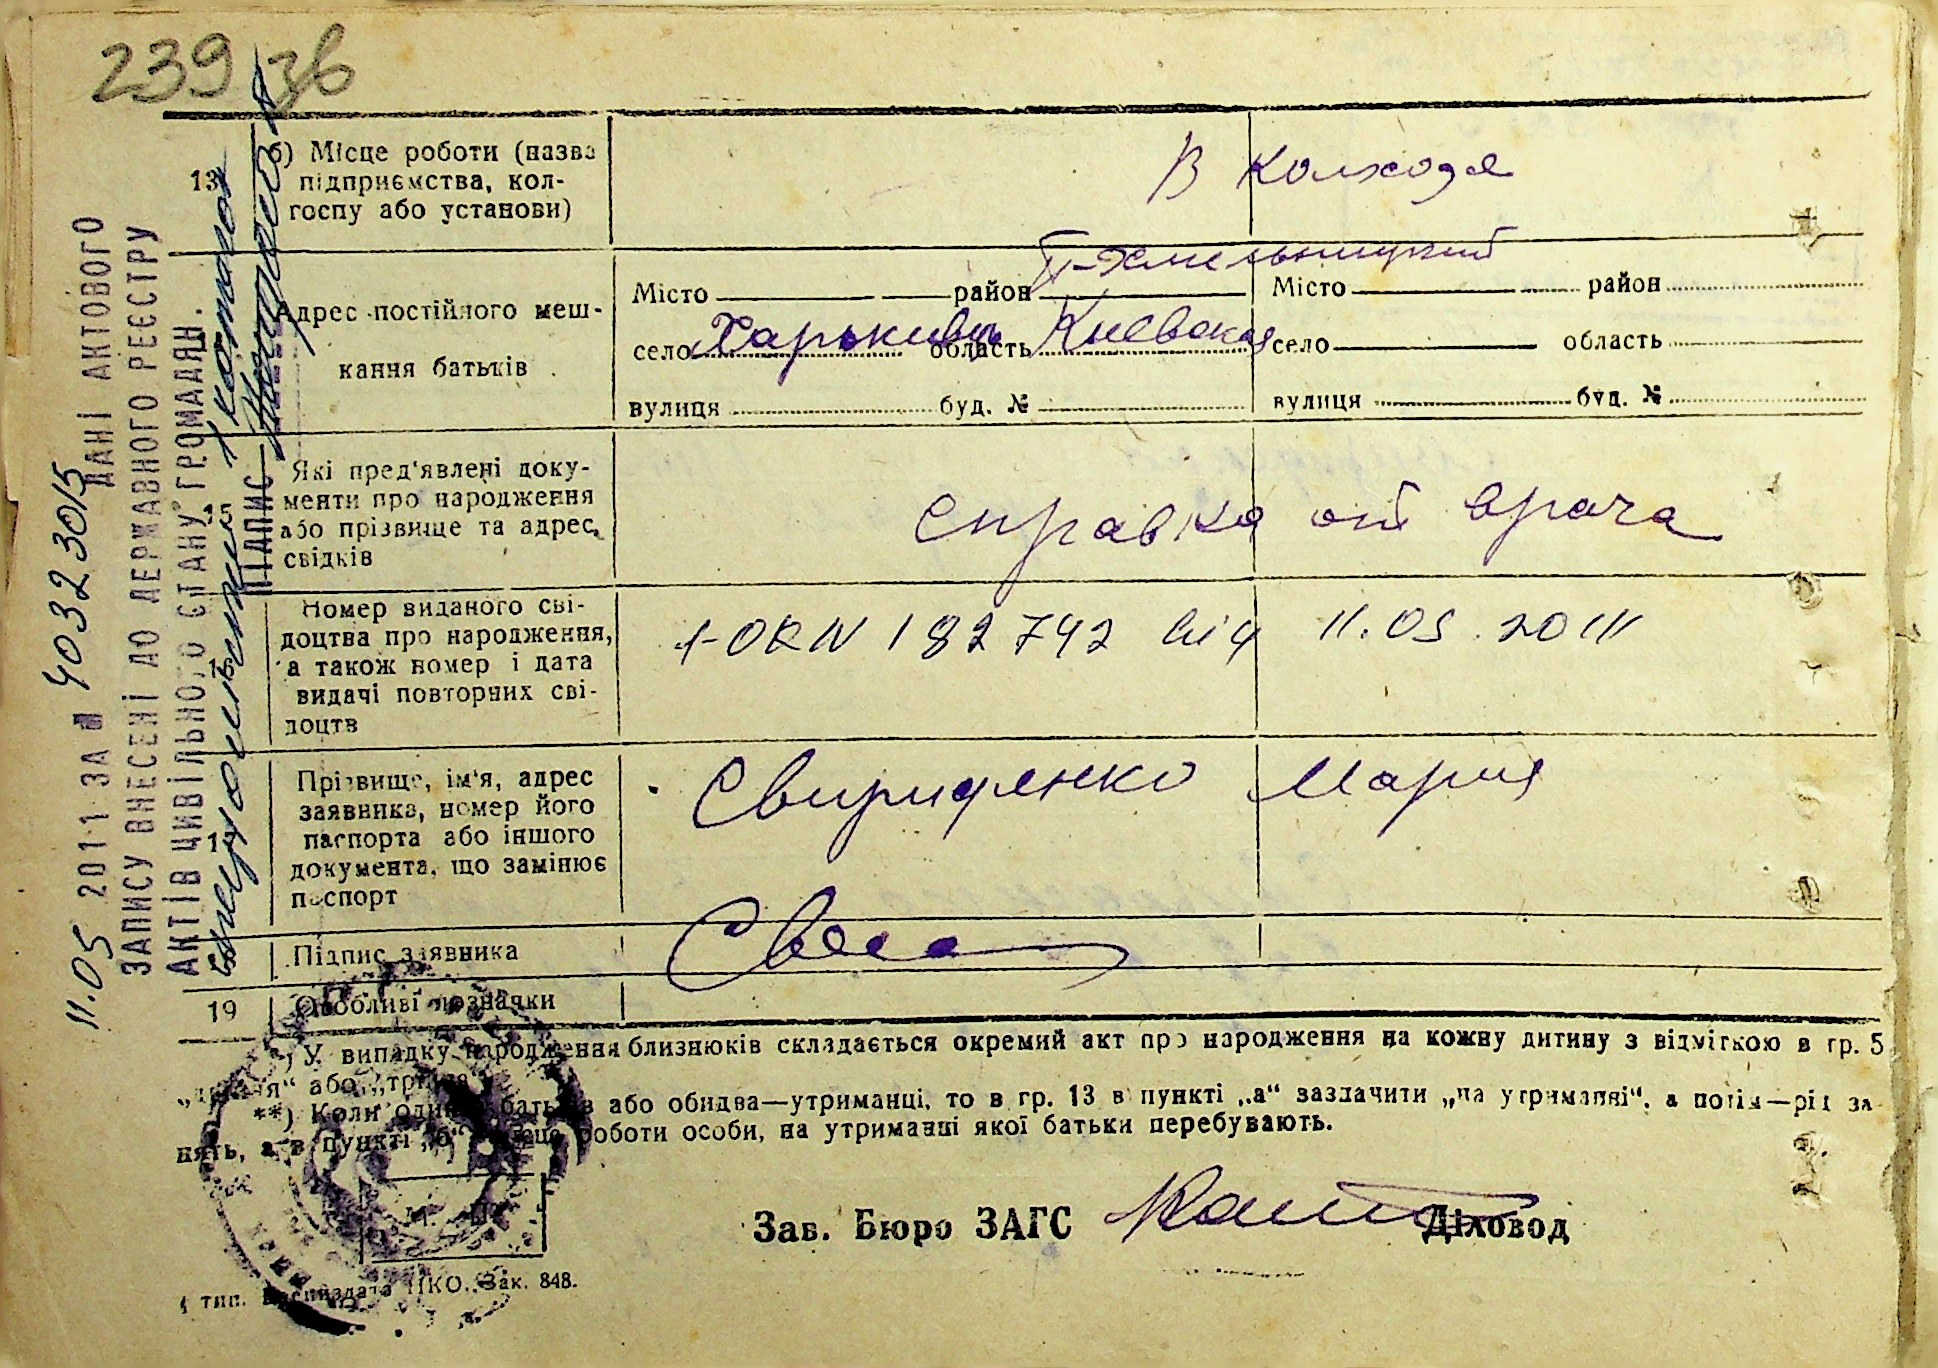 239 зв
13
б) Місце роботи (назва
підприємства, кол-
госпу або установи)
в колхозе
Адрес постійного меш-
кання батьків
П-Хмельницкий
Місто район
село Харьковцы область Киевская
вулиця буд. №
Місто район
село область
вулиця буд. №
Які пред'явлені доку-
менти про народження
або прізвище та адрес
свідків
справка от врача
Номер виданого сві-
доцтва про народження,
а також номер і дата
видачі повторних сві-
доцтв
182742 від 11.05.2011
Прізвище, ім'я, адрес
заявника, номер його
паспорта або іншого
документа, що замінює
паспорт
Свириденко Мария
Підпис заявника
19
Особливі позначки
*) У випадку народження близнюків складається окремий акт про народження на кожну дитину з відміткою в гр. 5
„двійня“ або „трійня“.
**) Коли один з батьків або обидва—утриманці, то в гр. 13 в пункті „а“ зазначити „на утриманні“, а потім—рід за
нять, а в пункті „б“ місце роботи особи, на утриманні якої батьки перебувають.
Зав. Бюро ЗАГС
Діловод
тип. НКО. Зак. 848.
11.05 2011 ЗА № 40323015 ДАНІ АКТОВОГО
ЗАПИСУ ВНЕСЕНІ ДО ДЕРЖАВНОГО РЕЄСТРУ
АКТІВ ЦИВІЛЬНОГО СТАНУ ГРОМАДЯН.
ПІДПИС